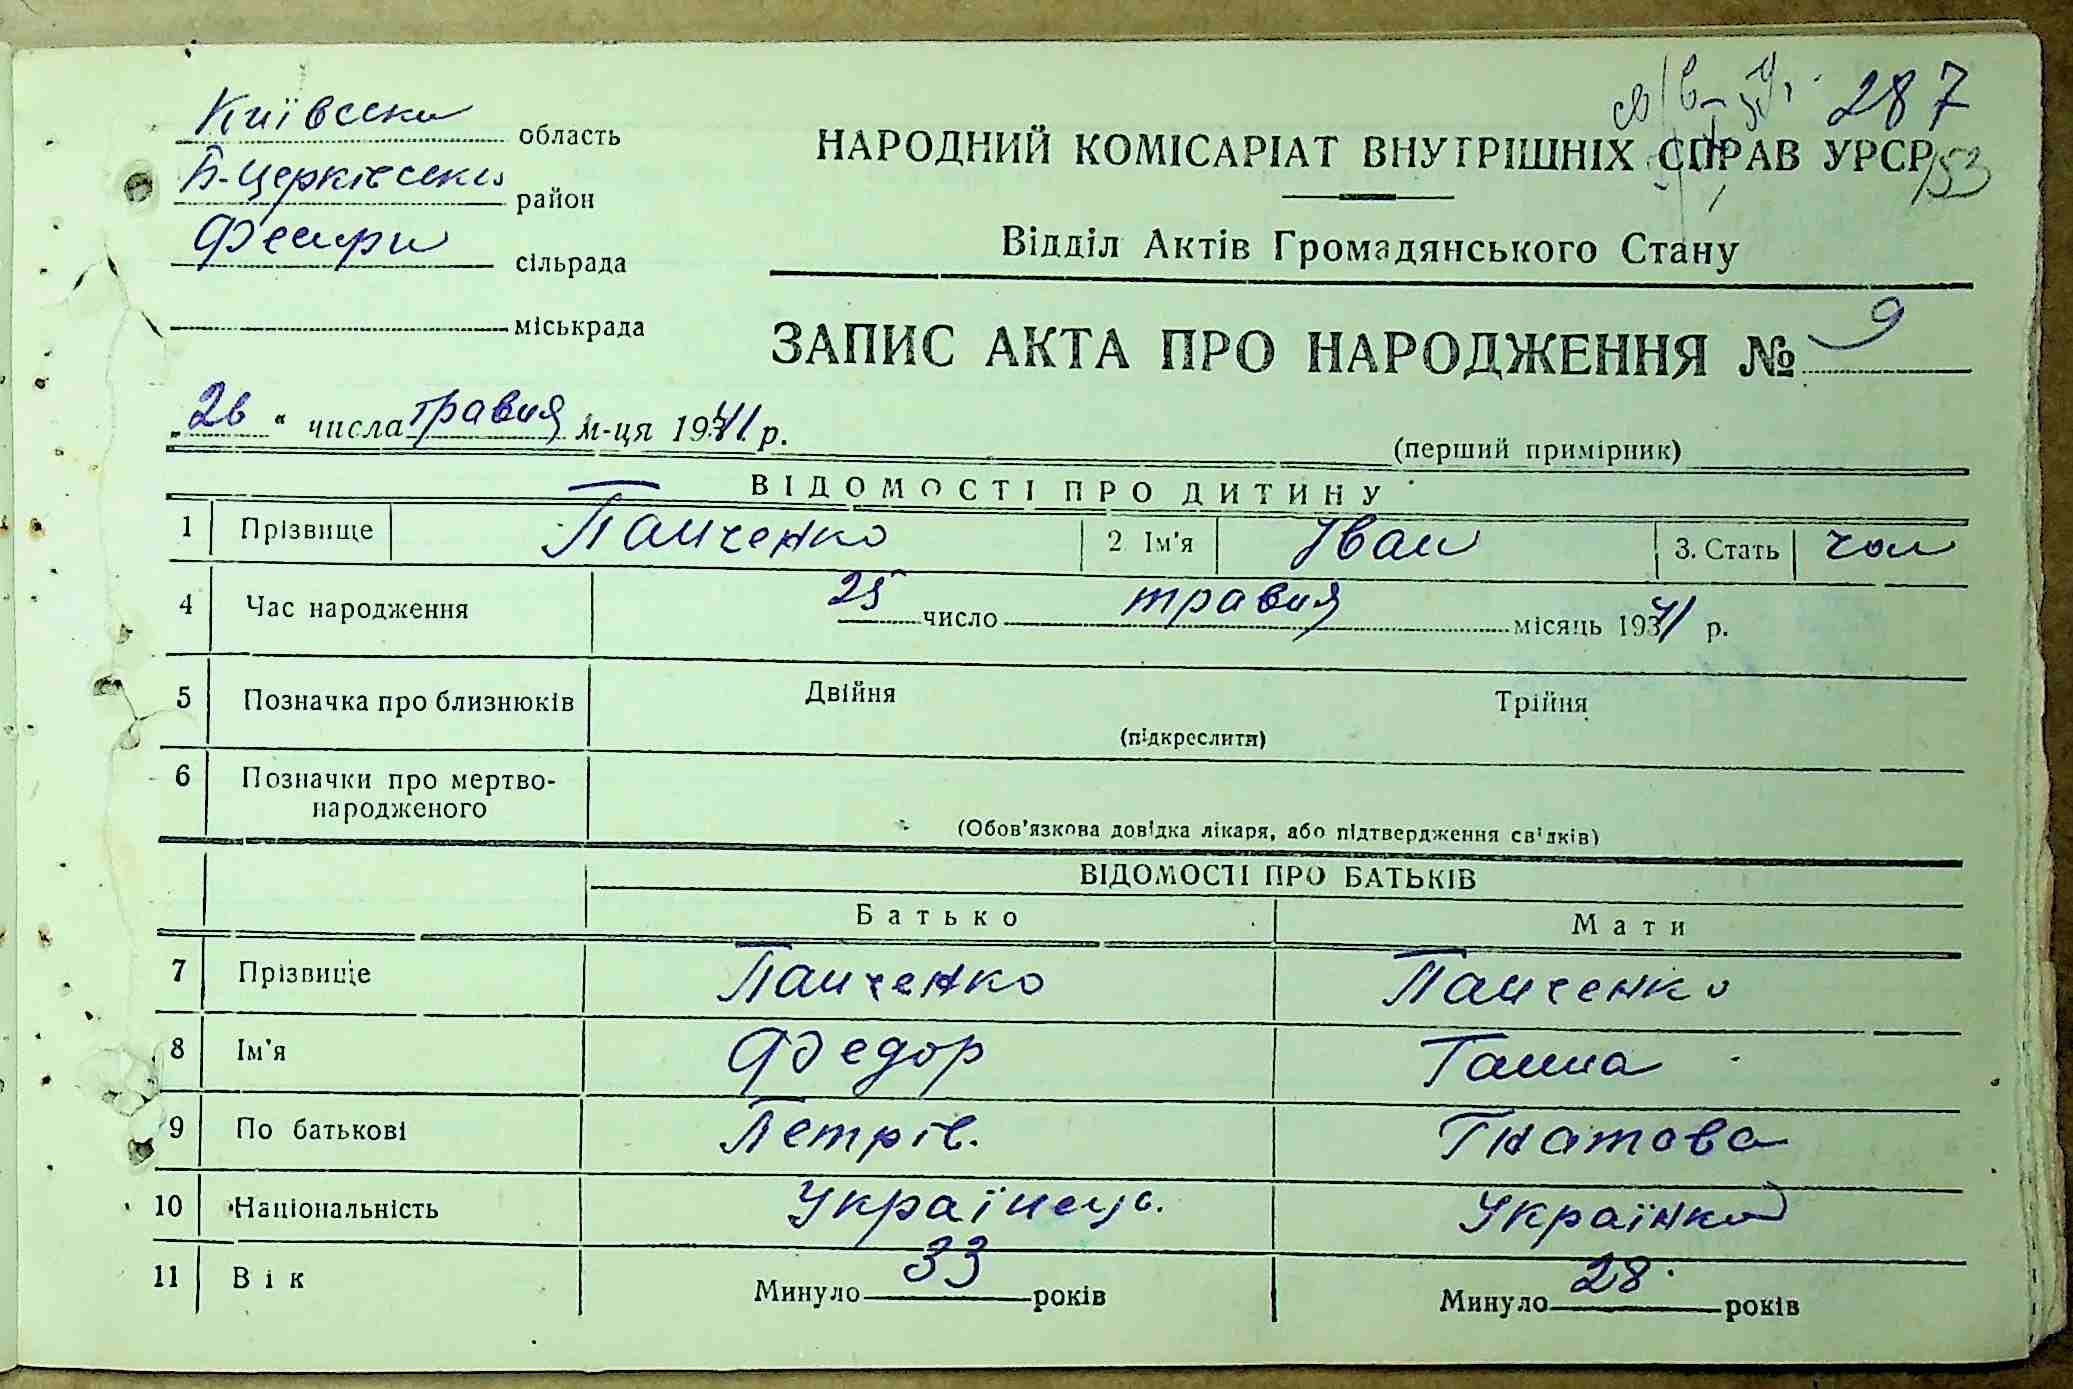 287
Київська область
НАРОДНИЙ КОМІСАРІАТ ВНУТРІШНІХ СПРАВ УРСР
153
Б-Церківська район
Фесири сільрада
Відділ Актів Громадянського Стану
міськрада
ЗАПИС АКТА ПРО НАРОДЖЕННЯ № 9
„26“ числа травня м-ця 1941 р.
(перший примірник)
ВІДОМОСТІ ПРО ДИТИНУ
1 Прізвище Панченко 2 Ім'я Іван 3. Стать чол
4 Час народження 25 число травня місяць 1941 р.
5 Позначка про близнюків Двійня Трійня
(підкреслити)
6 Позначки про мертво-
народженого
(Обов'язкова довідка лікаря, або підтвердження свідків)
ВІДОМОСТІ ПРО БАТЬКІВ
Батько Мати
7 Прізвище Панченко Панченко
8 Ім'я Федор Ганна
9 По батькові Петрів. Гнатова
10 Національність Українець. Українка
11 Вік Минуло 33 років Минуло 28 років